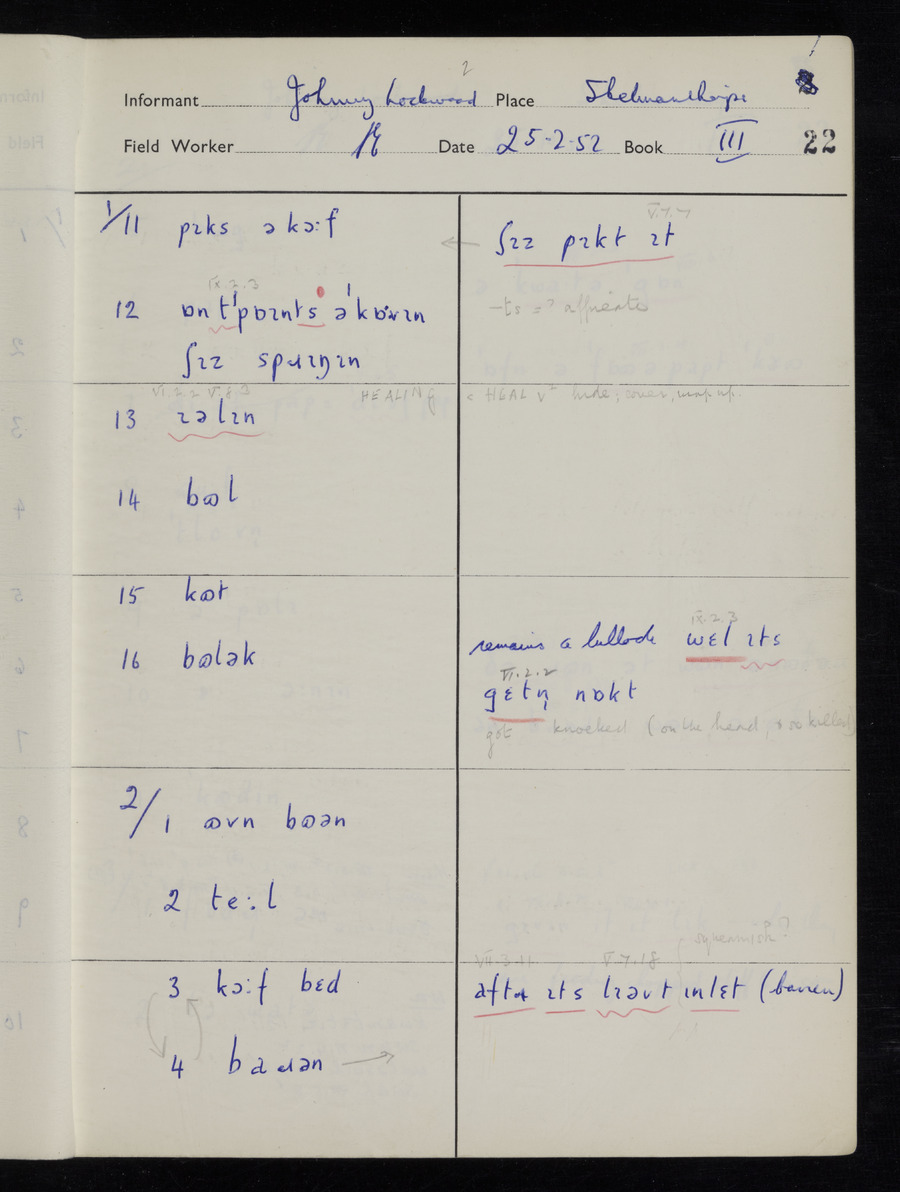 2
Informant Johnny Lockwood Place Skelmanthorpe
Field Worker Date 25-2-52 Book III 22
1/11 pɪks ə kɔːf
V.7.7
← ʃɪɪ pɪkt ɪt
IX.2.3
12 ɒn tˈpɒɪnts əˈkɒˑvɪn
-ts = ? affricate
ʃɪɪ spɹɪŋɪn
VI.2.2 V.8.3 HEALING < HEAL vb hide, cover, wrap up.
13 ɪəlɪn
14 bʊl
15 kʊt
16 bʊlək
IX.2.3
remains a bullock wɛl ɪts
VI.2.2
gɛtn̩ nɒkt
got knocked (on the head, & so killed)
2/1 ʊvn bʊən
2 teːl
squeamish?
VII.3.11 V.7.18
3 kɔːf bɛd
aftəɹ ɪts lɪəvt ɪnlɛt (barren)
4 baɹən →